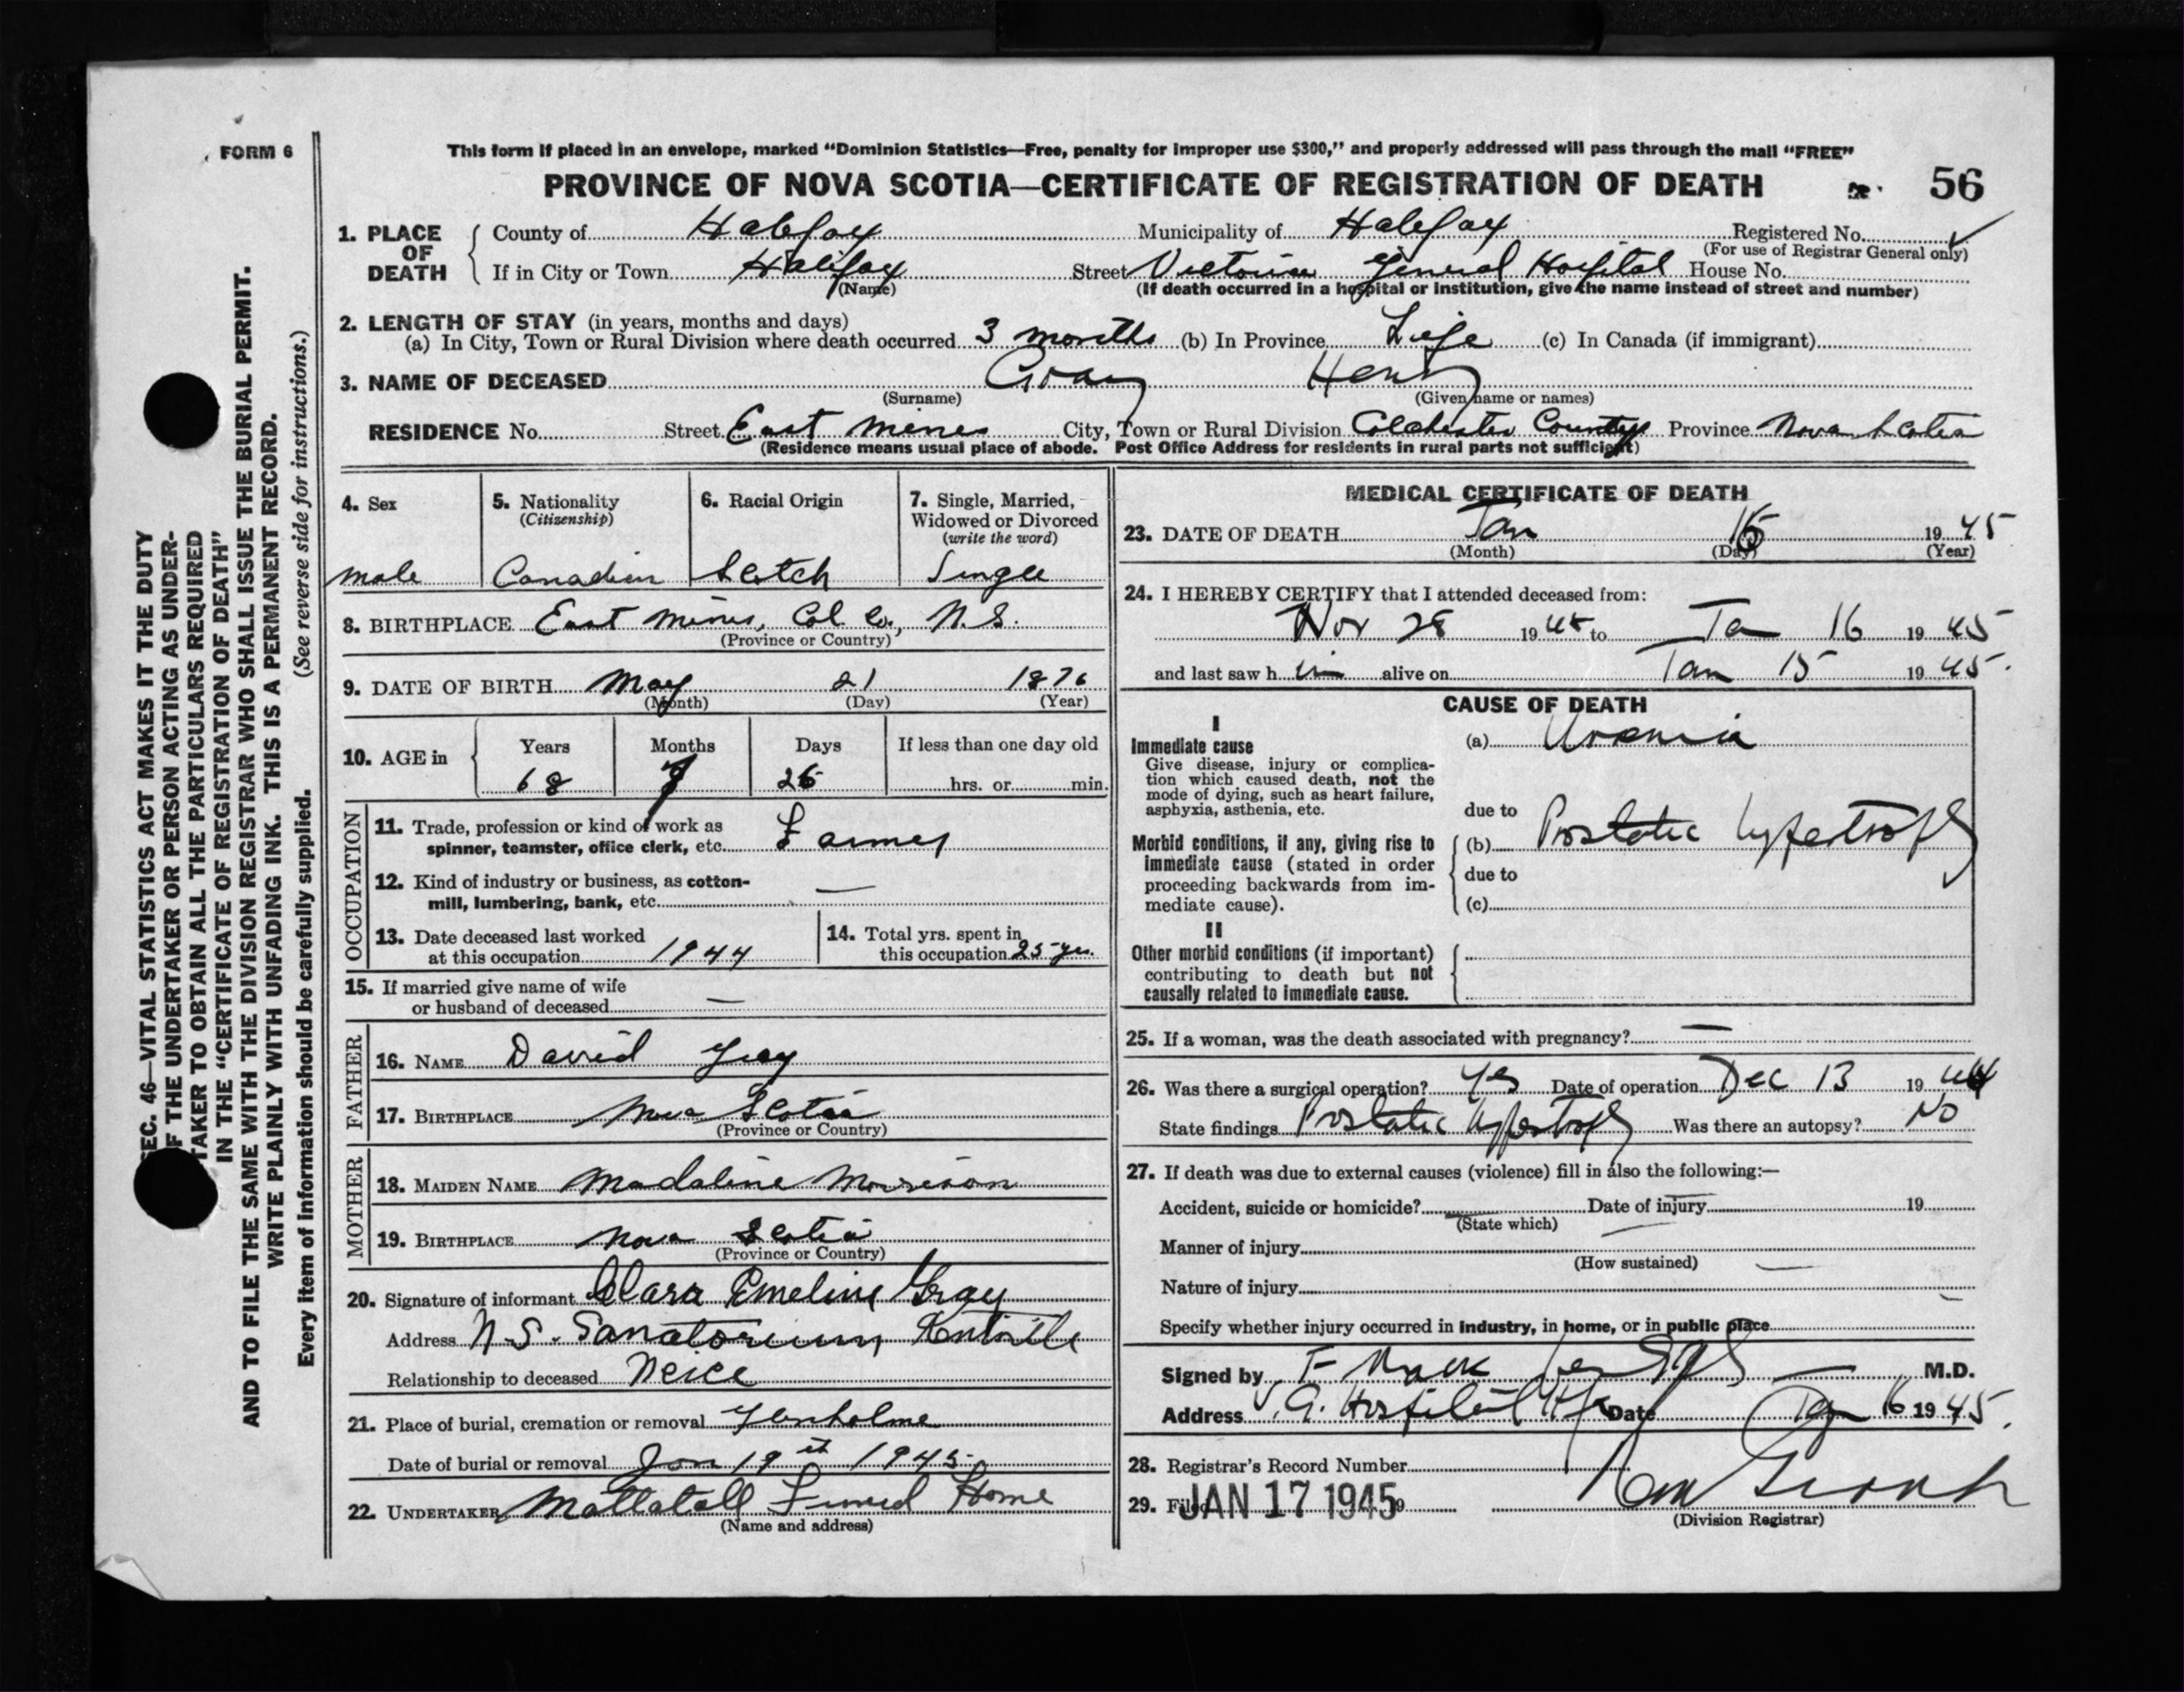 FORM 6
This form if placed in an envelope, marked “Dominion Statistics—Free, penalty for improper use $300,” and properly addressed will pass through the mail “FREE”
PROVINCE OF NOVA SCOTIA—CERTIFICATE OF REGISTRATION OF DEATH 56
1. PLACE OF DEATH
County of Halifax Municipality of Halifax Registered No.
(For use of Registrar General only)
If in City or Town Halifax Street Victoria General Hospital House No.
(Name) (If death occurred in a hospital or institution, give the name instead of street and number)
2. LENGTH OF STAY (in years, months and days)
(a) In City, Town or Rural Division where death occurred 3 months (b) In Province Life (c) In Canada (if immigrant)
3. NAME OF DECEASED Gray Henry
(Surname) (Given name or names)
RESIDENCE No. Street East Mines City, Town or Rural Division Colchester County Province Nova Scotia
(Residence means usual place of abode. Post Office Address for residents in rural parts not sufficient)
4. Sex
male
5. Nationality
(Citizenship)
Canadian
6. Racial Origin
Scotch
7. Single, Married,
Widowed or Divorced
(write the word)
Single
8. BIRTHPLACE East Mines, Col. Co., N.S.
(Province or Country)
9. DATE OF BIRTH May 21 1876
(Month) (Day) (Year)
10. AGE in
Years Months Days If less than one day old
68 7 hrs. or min.
OCCUPATION
11. Trade, profession or kind of work as
spinner, teamster, office clerk, etc. Farmer
12. Kind of industry or business, as cotton-
mill, lumbering, bank, etc. —
13. Date deceased last worked
at this occupation 1944
14. Total yrs. spent in
this occupation 25 yrs.
15. If married give name of wife
or husband of deceased —
FATHER
16. NAME David Gray
17. BIRTHPLACE Nova Scotia
(Province or Country)
MOTHER
18. MAIDEN NAME Madaline Morrison
19. BIRTHPLACE Nova Scotia
(Province or Country)
20. Signature of informant Clara Emeline Gray
Address N.S. Sanatorium Kentville
Relationship to deceased Neice
21. Place of burial, cremation or removal Glenholme
Date of burial or removal Jan 19th 1945
22. UNDERTAKER Mattatall Funeral Home
(Name and address)
MEDICAL CERTIFICATE OF DEATH
23. DATE OF DEATH Jan 1945
(Month) (Day) (Year)
24. I HEREBY CERTIFY that I attended deceased from:
Nov 28 19 to Jan 16 1945
and last saw him alive on Jan 15 1945.
CAUSE OF DEATH
I
Immediate cause
Give disease, injury or complica-
tion which caused death, not the
mode of dying, such as heart failure,
asphyxia, asthenia, etc.
(a) Uremia
due to
Morbid conditions, if any, giving rise to
immediate cause (stated in order
proceeding backwards from im-
mediate cause).
(b) Prostatic hypertrophy
due to
(c)
II
Other morbid conditions (if important)
contributing to death but not
causally related to immediate cause.
25. If a woman, was the death associated with pregnancy? —
26. Was there a surgical operation? Yes Date of operation Dec 13 1944
State findings Prostatic hypertrophy Was there an autopsy? No
27. If death was due to external causes (violence) fill in also the following:—
Accident, suicide or homicide? Date of injury 19
(State which)
Manner of injury
(How sustained)
Nature of injury
Specify whether injury occurred in industry, in home, or in public place
Signed by F. Mack M.D.
Address V.G. Hospital Hfx Date Jan 16 1945.
28. Registrar's Record Number
29. Filed JAN 17 1945
(Division Registrar)
SEC. 46—VITAL STATISTICS ACT MAKES IT THE DUTY
OF THE UNDERTAKER OR PERSON ACTING AS UNDER-
TAKER TO OBTAIN ALL THE PARTICULARS REQUIRED
IN THE “CERTIFICATE OF REGISTRATION OF DEATH”
AND TO FILE THE SAME WITH THE DIVISION REGISTRAR WHO SHALL ISSUE THE BURIAL PERMIT.
WRITE PLAINLY WITH UNFADING INK. THIS IS A PERMANENT RECORD.
Every item of information should be carefully supplied. (See reverse side for instructions.)